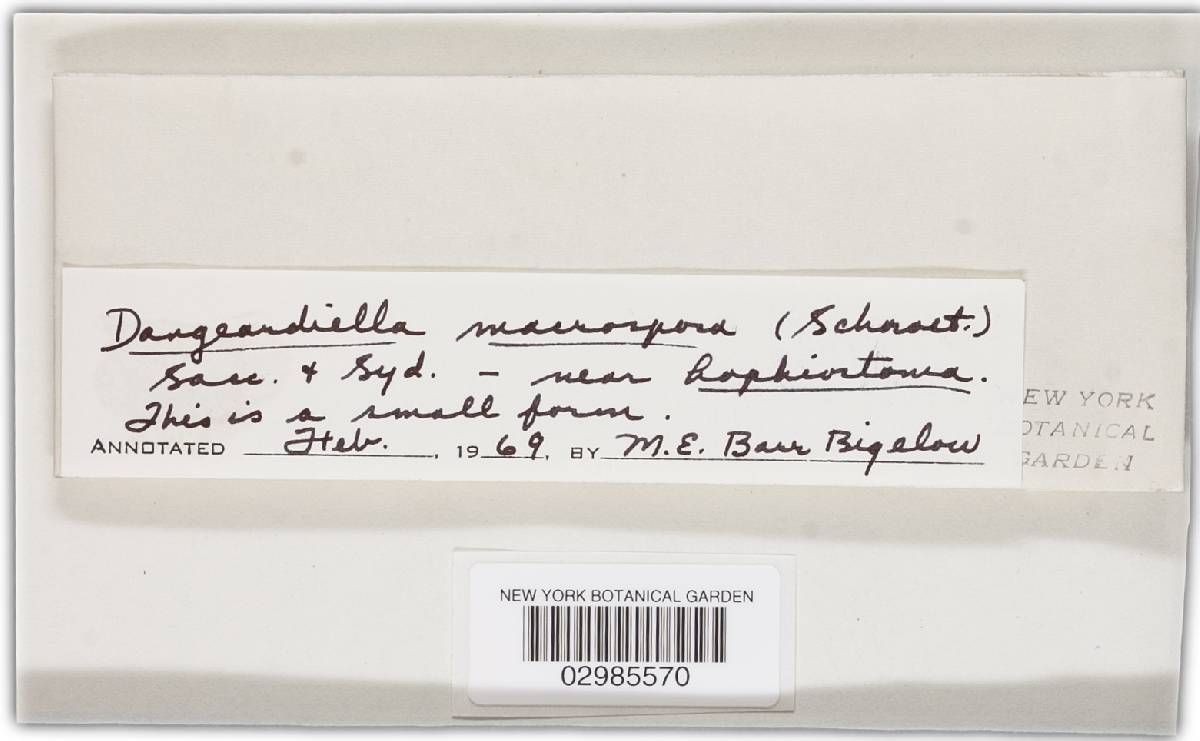 Dangeardiella macrospora (Schroet.)
Sacc. & Syd. – near Lophiostoma.
This is a small form.
ANNOTATED Feb. , 1969, BY M.E. Barr Bigelow
EW YORK
OTANICAL
GARDEN
NEW YORK BOTANICAL GARDEN
02985570